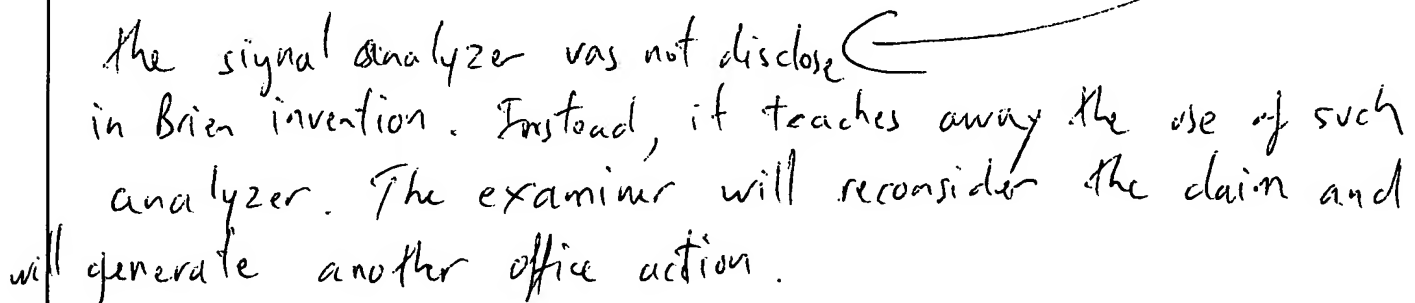 the signal analyzer was not disclose
in Brien invention. Instead, it teaches away the use of such
analyzer. The examiner will reconsider the claim and
will generate another office action.